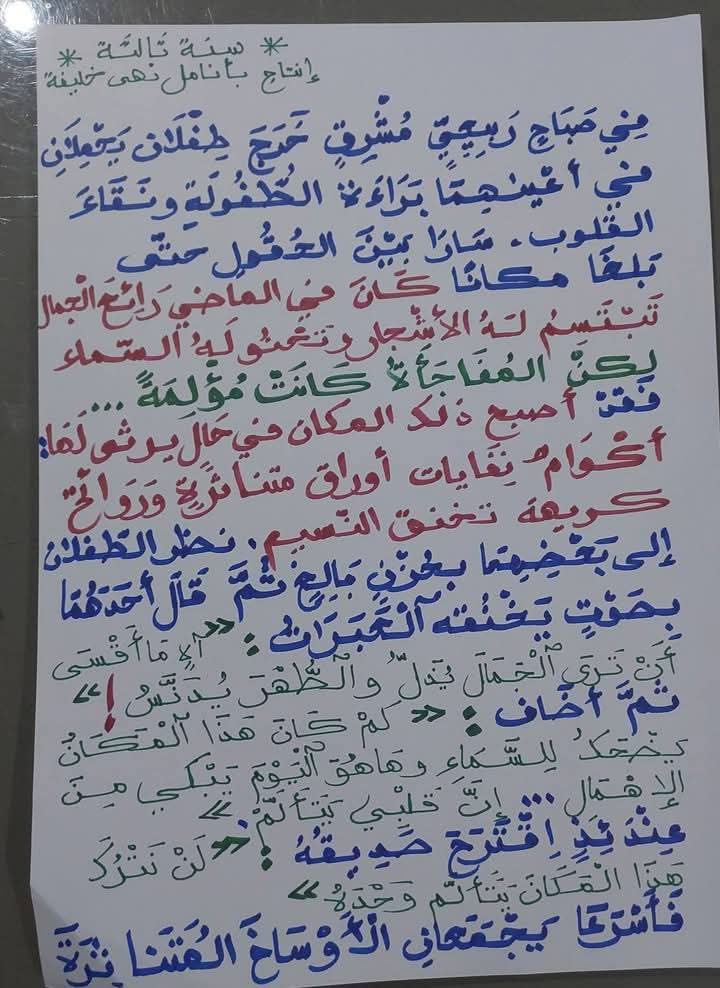 * سنة ثالثة *
إنتاج بأنامل نهى خليفة
فِي صَبَاحٍ رَبِيعِيٍّ مُشْرِقٍ خَرَجَ طِفْلَانِ يَحْمِلَانِ
فِي أَعْيُنِهِمَا بَرَاءَةَ الطُّفُولَةِ وَنَقَاءَ
القُلُوبِ. سَارَا بَيْنَ الحُقُولِ حَتَّى
بَلَغَا مكانًا كَانَ فِي الماضي رَائِعَ الْجمال
تَبْتَسِمُ لَهُ الأشْجار وتَحْنُو لَهُ السّماء
لكِنْ المُفَاجَأَةَ كَانَتْ مُؤْلِمَةً ...
فَقَدْ أصبح ذلك المكان في حَالٍ يرثى لَهَا:
أكْوَامُ نِفَايات أوراق متناثِرَةٍ وَرَوَائحَ
كريهة تخنق النّسيم. نظر الطّفلان
إلى بَعْضِهِمَا بِحُزْنٍ بَالِغٍ ثُمَّ قَالَ أَحَدُهُمَا
بِصَوْتٍ يَخْنُقه الْعَبَرَاتُ: «آهِ مَا أَقْسَى
أَنْ تَرَى الْجَمَالَ يُذَلُّ والطُّهْرَ يُدَنَّسُ!»
ثمَّ أضَاف: «كَمْ كَانَ هَذَا الْمَكَانُ
يَضْحَكُ لِلسَّمَاءِ وهَاهُوَ الْيَوْمَ يَبْكِي مِنَ
الإِهْمَالِ ... إِنَّ قَلْبِي يَتَأَلَّمُ»
عِنْدَئِذٍ اِقْتَرَحَ صَدِيقُهُ: «لَنْ نَتْرُكَ
هَذَا الْمَكَانَ يَتَأَلَّم وَحْدَهُ»
فَأَسْرَعَا يَجْمَعَانِ الْأَوْسَاخَ المُتَنَاثِرَةَ